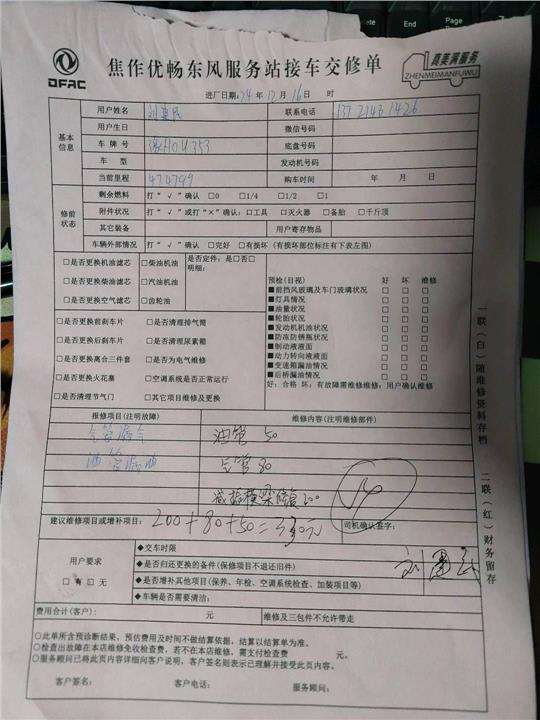 Page
DFAC
焦作优畅东风服务站接车交修单
真美满服务
ZHENMEIMANFUWU
进厂日期:24年12月16日 时
基本信息
用户姓名
联系电话
用户生日 微信号码
车牌号 底盘号码
车型 发动机号码
当前里程 474799 购车时间 年 月 日
修前状态
剩余燃料 打“√”确认 □0 □1/4 □1/2 □1
附件状况 打“√”或打“×”确认:□工具 □灭火器 □备胎 □千斤顶
其它装备 用户寄存物品
车辆外部情况 打“√”确认 □完好 □有损坏(有损坏部位标注有下表左图)
□是否更换机油滤芯 □柴油机油 是否定件:是□否□
□是否更换柴油滤芯 □汽油机油 明细:
□是否更换空气滤芯 □齿轮油
□是否更换前刹车片 □是否清理排气筒
□是否更换后刹车片 □是否清理尿素箱
□是否更换离合三件套 □是否为电气维修
□是否更换火花塞 □空调系统是否正常运行
□是否清理节气门 □其它项目维修及更换
预检(目视) 好 坏 维修
■前挡风玻璃及车门玻璃状况 □ □ □
■灯具情况 □ □ □
■油量状况 □ □ □
■轮胎状况 □ □ □
■发动机机油状况 □ □ □
■防冻防锈瓶状况 □ □ □
■制动液液面 □ □ □
■助力转向液液面 □ □ □
■变速箱漏油情况 □ □ □
■后桥漏油情况 □ □ □
好:合格 坏:有故障需维修维修:用户确认维修
报修项目(注明故障) 维修内容(注明维修部件)
气管漏气 油管 50
油管漏油 气管 80
200
建议维修项目或增补项目: 200+80+50=330元 司机确认签字:
用户要求
□有 □无
◆交车时限
◆是否归还更换的备件(保修项目不退还旧件)
◆是否增补其他项目(保养、年检、空调系统检查、加装项目等)
◆车辆是否需要清洁:
费用合计(客户): 元 维修及三包件不允许带走
○此单所含预诊断结果,预估费用及时间不做结算依据,结算以结算单为准。
○检查出故障在本店维修免收检查费,若不在本店维修,需支付检查费 元。
○服务顾问已将此页内容详细向客户说明,客户签名则表示已理解并接受此页内容。
客户签名: 客户电话: 服务顾问:
一联(白)随维修资料存档
二联(红)财务留存